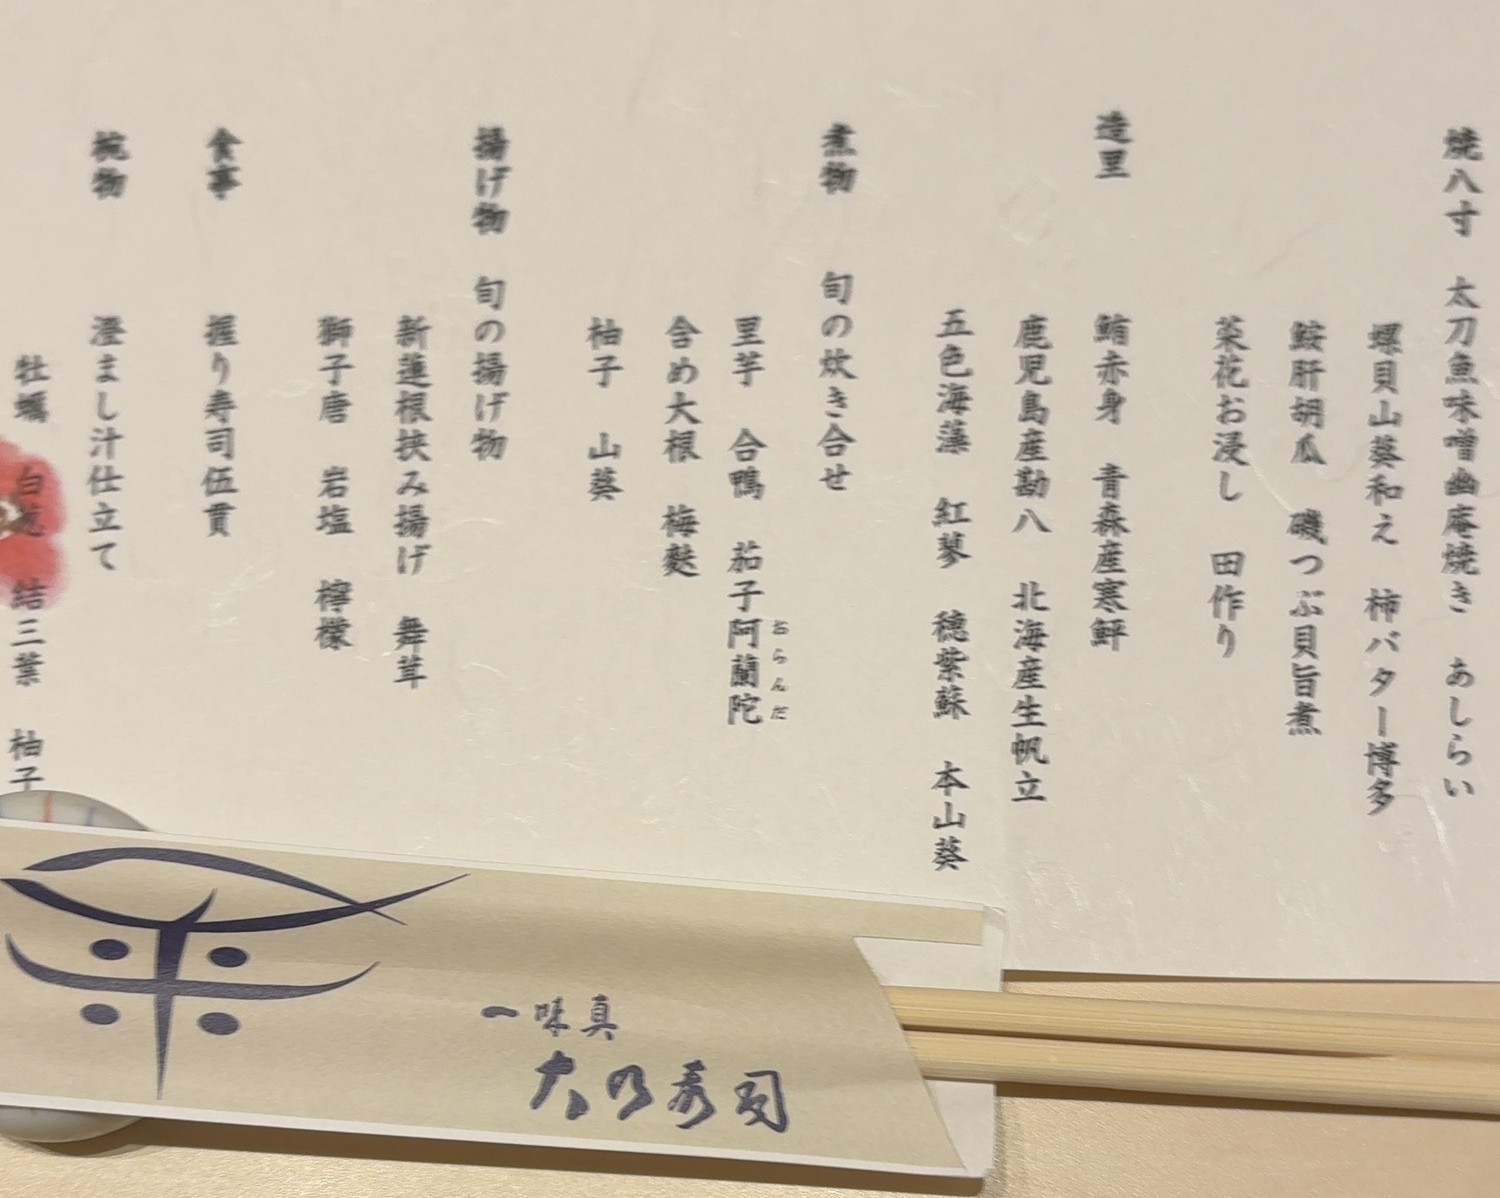 焼八寸 太刀魚味噌幽庵焼き あしらい
螺貝山葵和え 柿バター博多
鮟肝胡瓜 磯つぶ貝旨煮
菜花お浸し 田作り
造里
鮪赤身 青森産寒鮃
鹿児島産勘八 北海産生帆立
五色海藻 紅蓼 穂紫蘇 本山葵
煮物 旬の炊き合せ
里芋 合鴨 茄子阿蘭陀
おらんだ
含め大根 梅麩
柚子 山葵
揚げ物 旬の揚げ物
新蓮根挟み揚げ 舞茸
獅子唐 岩塩 檸檬
食事 握り寿司伍貫
椀物 澄まし汁仕立て
牡蠣 白葱 結三葉 柚子
一味真
大乃寿司